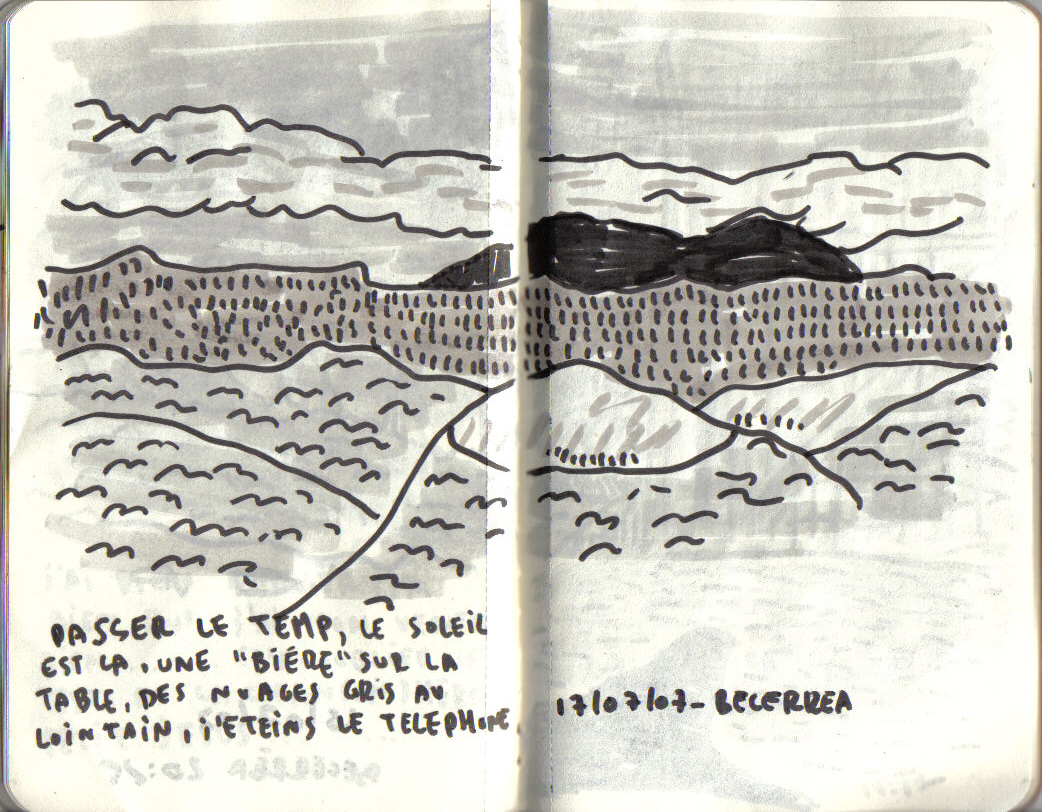 PASSER LE TEMP, LE SOLEIL
EST LA, UNE "BIÉRE" SUR LA
TABLE, DES NUAGES GRIS AU
LOINTAIN, J'ETEINS LE TELEPHONE
17/07/07- BECERREA